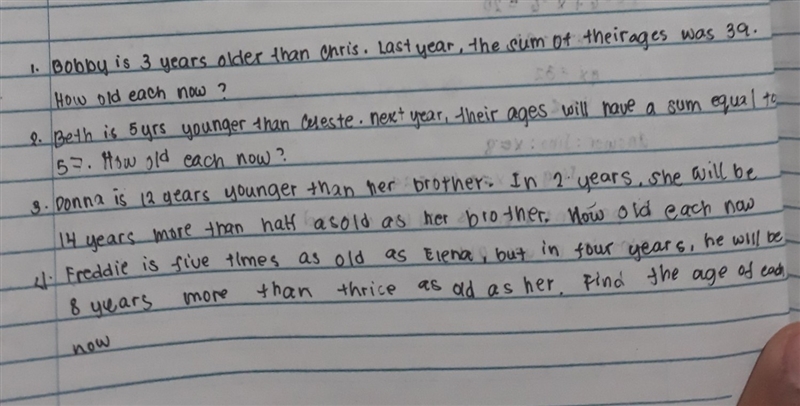 1. Bobby is 3 years older than Chris. Last year, the sum of their ages was 39.
How old each now?
2. Beth is 5yrs younger than Celeste. next year, their ages will have a sum equal to
57. How old each now?
3. Donna is 12 years younger than her brother. In 2 years, she will be
14 years more than half as old as her brother. How old each now
4. Freddie is five times as old as Elena, but in four years, he will be
8 years more than thrice as old as her. Find the age of each
now